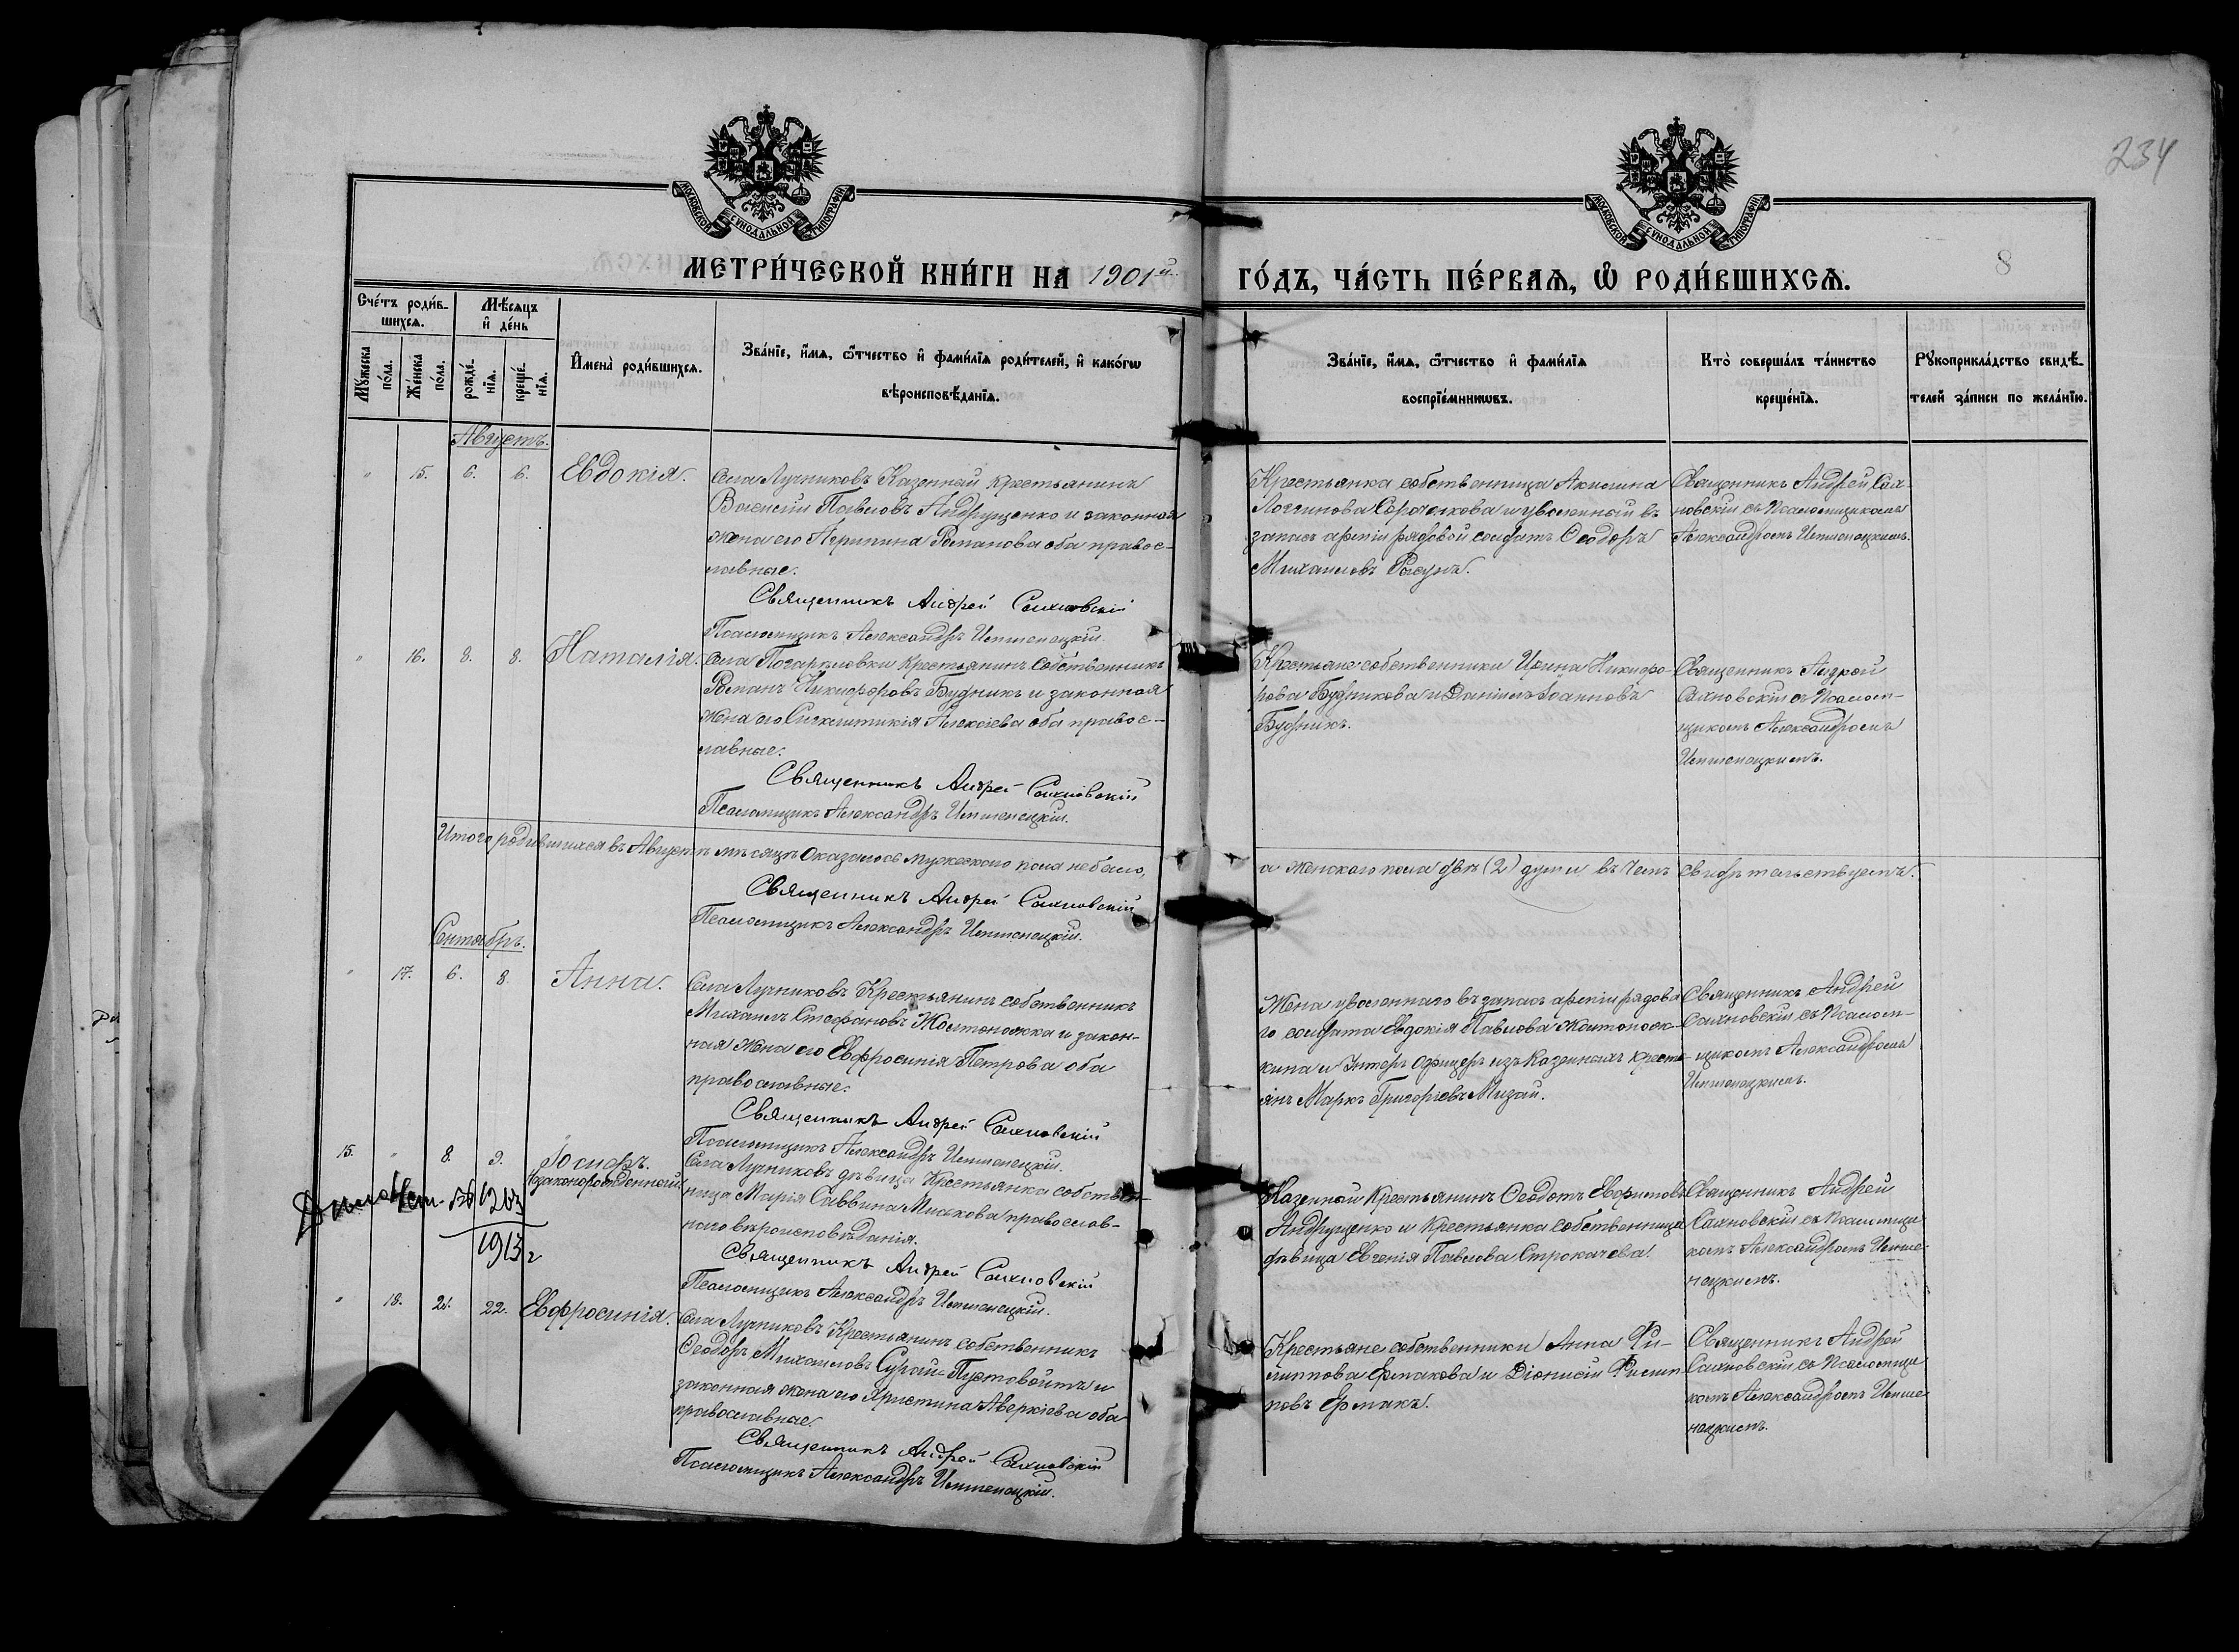 234
8
МОСКОВСКОЙ СУНОДАЛЬНОЙ ТИПОГРАФІИ
МОСКОВСКОЙ СУНОДАЛЬНОЙ ТИПОГРАФІИ
МЕТРИ́ЧЕСКОЙ КНИ́ГИ НА 1901й
ГО́ДЪ, ЧА́СТЬ ПЕ́РВАѦ, Ѡ҆ РОДИ́ВШИХСѦ.
Сче́тъ роди́в-
шихся.
Мѣ́сяцъ
и҆ де́нь
Мꙋ́жеска по́ла.
Же́нска по́ла.
рожде́-
нїя.
креще́-
нїя.
И҆мена̀ роди́вшихся.
Зва́нїе, и҆́мя, ѻ҆́тчество и҆ фами́лїя роди́телей, и҆ како́гѡ
вѣроисповѣ́данїя.
Зва́нїе, и҆́мя, ѻ҆́тчество и҆ фами́лїя
воспрїе́мникѡвъ.
Кто̀ соверша́лъ та́инство
креще́нїя.
Рꙋкоприкла́дство свидѣ́-
телей за́писи по жела́нїю.
Августъ.
" 15. 6. 6. Евдокія.
Села Лучниковъ Казенный крестьянинъ
Василій Павловъ Андрущенко и законная
жена его Агрипина Романова оба правос-
лавные.
Священникъ Андрей Сахновскій
Псаломщикъ Александръ
Крестьянка собственница Акилина
Логгинова Сороченкова и уволенный въ
запасъ арміи рядовой солдатъ Ѳеодоръ
Михаиловъ
Священникъ Андрей Сах-
новскій съ Псаломщикомъ
Александромъ
" 16. 8. 8. Наталія.
Села Погарѣловки крестьянинъ собственникъ
Романъ Никифоровъ Будникъ и законная
жена его Синклитикія Алексіева оба правос-
лавные.
Священникъ Андрей Сахновскій
Псаломщикъ Александръ
Крестьяне собственники Ирина Никифо-
рова Будникова и Даніилъ Іоанновъ
Будникъ.
Священникъ Андрей
Сахновскій съ Псалом-
щикомъ Александромъ
Итого родившихся въ Августѣ мѣсяцѣ оказалось мужескаго пола небыло,
а женскаго пола двѣ (2) души въ чемъ свидѣтельствуемъ.
Священникъ Андрей Сахновскій
Псаломщикъ Александръ
Сентябрь.
" 17. 6. 8. Анна.
Села Лучниковъ Крестьянинъ собственникъ
Михаилъ Стефановъ Жолтоножка и закон-
ная жена его Евфросинія Петрова оба
православные.
Священникъ Андрей Сахновскій
Псаломщикъ Александръ
Жена уволеннаго въ запасъ арміи рядова
го солдата Евдокія Павлова Жолтонож-
кина и Унтеръ Офицеръ изъ Казенныхъ кресть-
янъ Маркъ Григорьевъ Мизай.
Священникъ Андрей
Сахновскій съ Псалом-
щикомъ Александромъ
15. " 8. 9. Іосифъ.
Незаконорожденный
1913 г
Села Лучниковъ дѣвица Крестьянка собствен-
ница Марія Саввина Миськова православ-
наго вѣроисповѣданія.
Священникъ Андрей Сахновскій
Псаломщикъ Александръ
Казенный Крестьянинъ Ѳеодотъ Евфимовъ
Андрущенко и Крестьянка собственница
дѣвица Евгенія Павлова Строкачева.
Священникъ Андрей
Сахновскій съ Псаломщи
комъ Александромъ
" 18. 21. 22. Евфросинія.
Села Лучниковъ Крестьянинъ собственникъ
Ѳеодоръ Михаиловъ Сугай-Пустовойтъ и
законная жена его Христина Аверкіева оба
православные.
Священникъ Андрей Сахновскій
Псаломщикъ Александръ
Крестьяне собственники Анна Фи-
липпова Ермакова и Діонисій Филип
повъ Ермакъ.
Священникъ Андрей
Сахновскій съ Псаломщи
комъ Александромъ